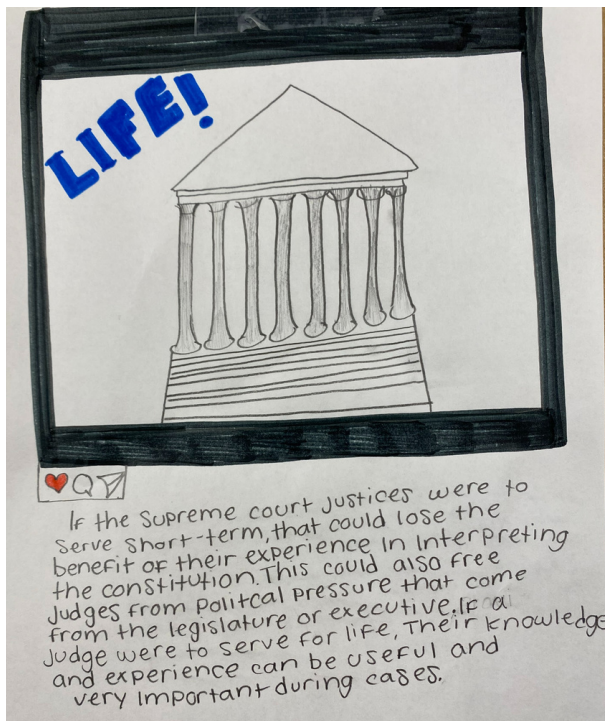 LIFE!
If the Supreme court Justices were to
serve short-term, that could lose the
benefit of their experience in Interpreting
the constitution. This could also free
Judges from Politcal Pressure that come
from the legislature or executive. If a
Judge were to serve for life, Their knowledge
and experience can be useful and
very Important during cases.